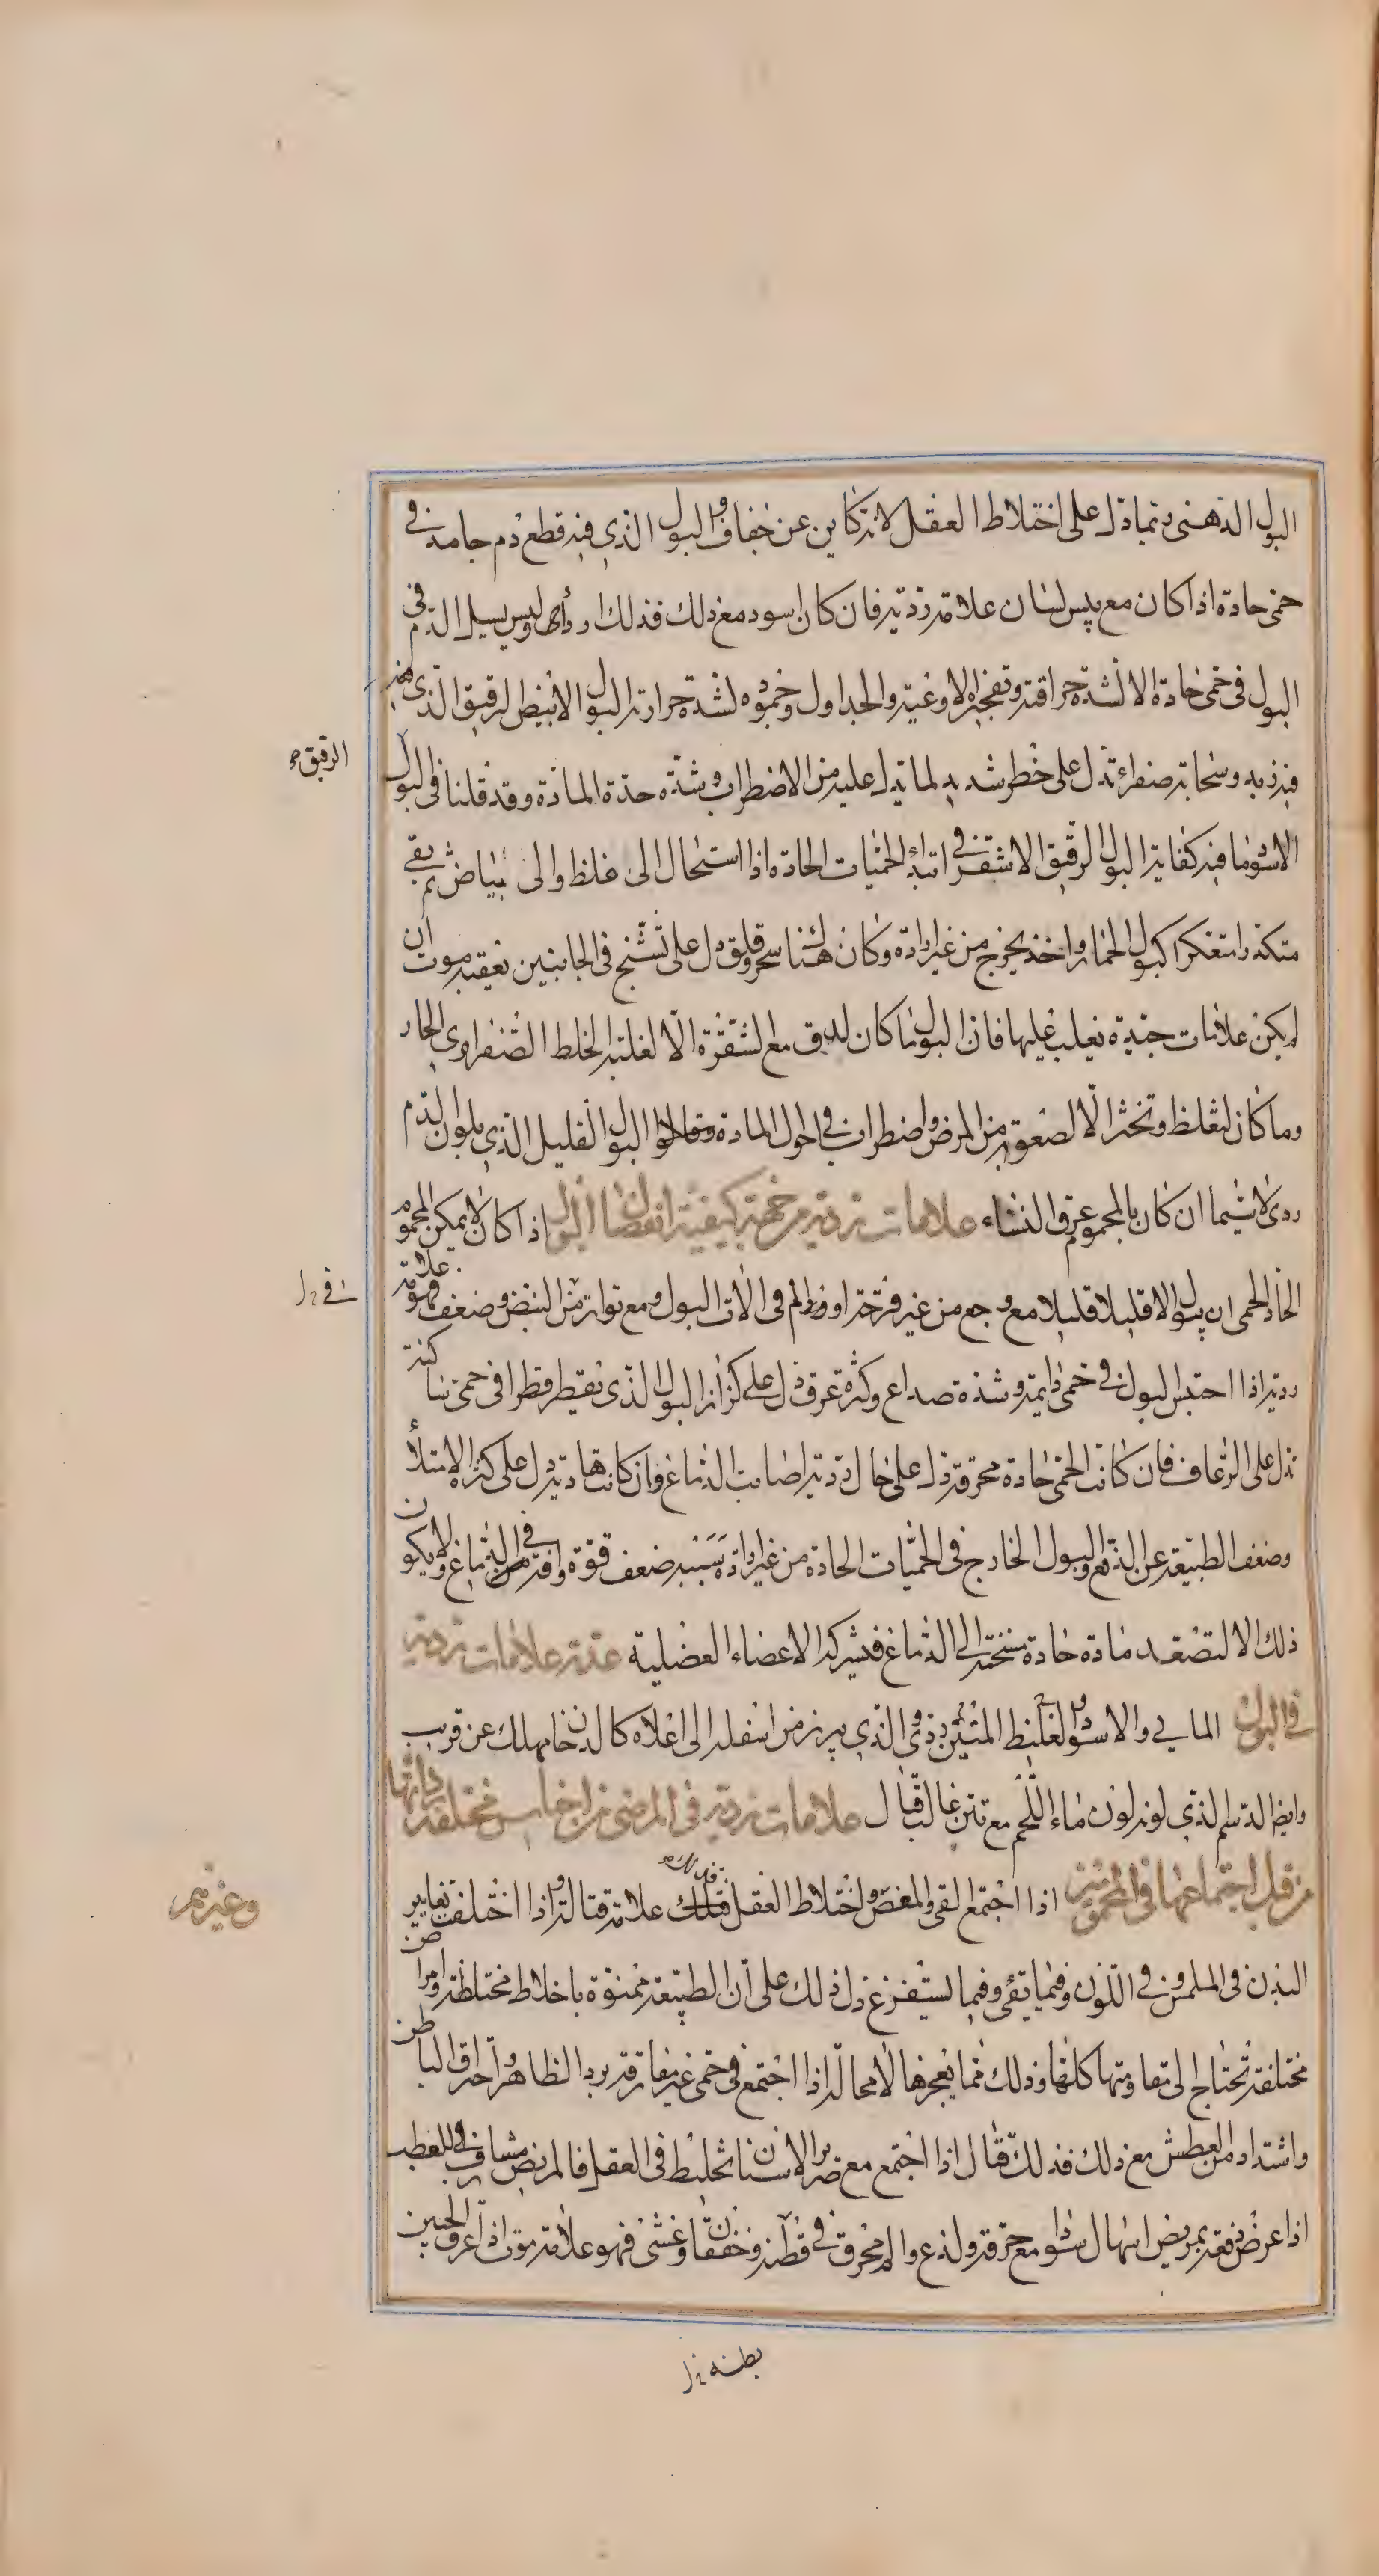 البول الدهنى ربما دل على اختلاط العقل لانه كاين عن جفاف والبول الذي فيه قطع دم جامد فى
حمى حادة اذا كان مع يبس لسان علامة ردية فان كان اسود مع ذلك فذلك اردأ وليس يسيل الدم فى
البول فى حمى حادة الا لشدة حراقته وتفجيره الاوعية والجداول وجموده لشدة حرارته البول الابيض الرقيق الذى
فيه زبد وسحابة صفراء تدل على خطر شديد لما يدل عليه من الاضطراب وشدة حدة المادة وقد قلنا فى البول
الرقيق
الاسود ما فيه كفاية البول الرقيق الاشقر فى ابتداء الحميات الحادة اذا استحال الى غلظ والى بياض ثم بقى
متكدرا متعكرا كبول الحمار واخذ يخرج من غير ارادة وكان هناك سهر وقلق دل على تشنج فى الجانبين يعقبه موت ان
لم يكن علامات جيدة يغلب عليها فان البول ما كان ليرق مع الشقرة الا لغلبة الخلط الصفراوي الحار
وما كان ليغلظ وتخثر الا لصعوبة من المرض واضطراب فى احوال المادة وقالوا البول القليل الذي بلون الدم
ردى لا سيما ان كان بالمحموم عرق النساء علامات ردية من جهة كيفية انفصال البول اذا كان لا يمكن المحموم
الحاد الحمى ان يبول الا قليلا قليلا مع وجع من غير قرحة او ورم فى الات البول ومع تواتر من النبض وضعف فهو علامة
ردية اذا احتبس البول فى حمى دايمة وشدة صداع وكثرة عرق دل على كزاز البول الذى يقطر قطرا فى حمى ساكنة
تدل على الرعاف فان كانت الحمى حادة محرقة دل على حال ردية اصابت الدماغ وان كانت هادية دل على كثرة الامتلاء
وضعف الطبيعة عن الدفع والبول الخارج فى الحميات الحادة من غير ارادة سببه ضعف قوة وافة فى الدماغ ولا يكون
ذلك الا لتصعد مادة حادة مسخنة الى الدماغ فيشركه الاعضاء العضلية عدة علامات ردية
فى البول المايي والاسود والغليظ المنتن ردى والذي يبرز من اسفله الى اعلاه كالدخان مهلك عن قريب
وايضا الدسم الذي لونه لون ماء اللحم مع نتن غالب قتال علامات ردية فى المرضى من اجناس مختلفة رداءتها
من قبل اجتماعها فى المحمومين وغيرهم اذا اجتمع القى والمغص واختلاط العقل فتلك علامة قتالة واذا اختلف تغايير
البدن فى الملمس وفى اللون وفيما يتقئ وفيما يستفرغ دل ذلك على ان الطبيعة ممنوة باخلاط مختلطة وامراض
مختلفة تحتاج الى مقاومتها كلها وذلك مما يعجزها لا محالة اذا اجتمع فى حمى غير مفارقة برد الظاهر واحتراق الباطن
واشتداد من العطش مع ذلك فذلك قتال اذا اجتمع مع صرير الاسنان تخليط فى العقل فالمريض مشارف للعطب
اذا عرض دفعة بمريض اسهال سوداوى مع حرقة ولذع والم محرق فى قطنه وخفقان وغشى فهو علامة موت اذا عرق الجبين
بطنه